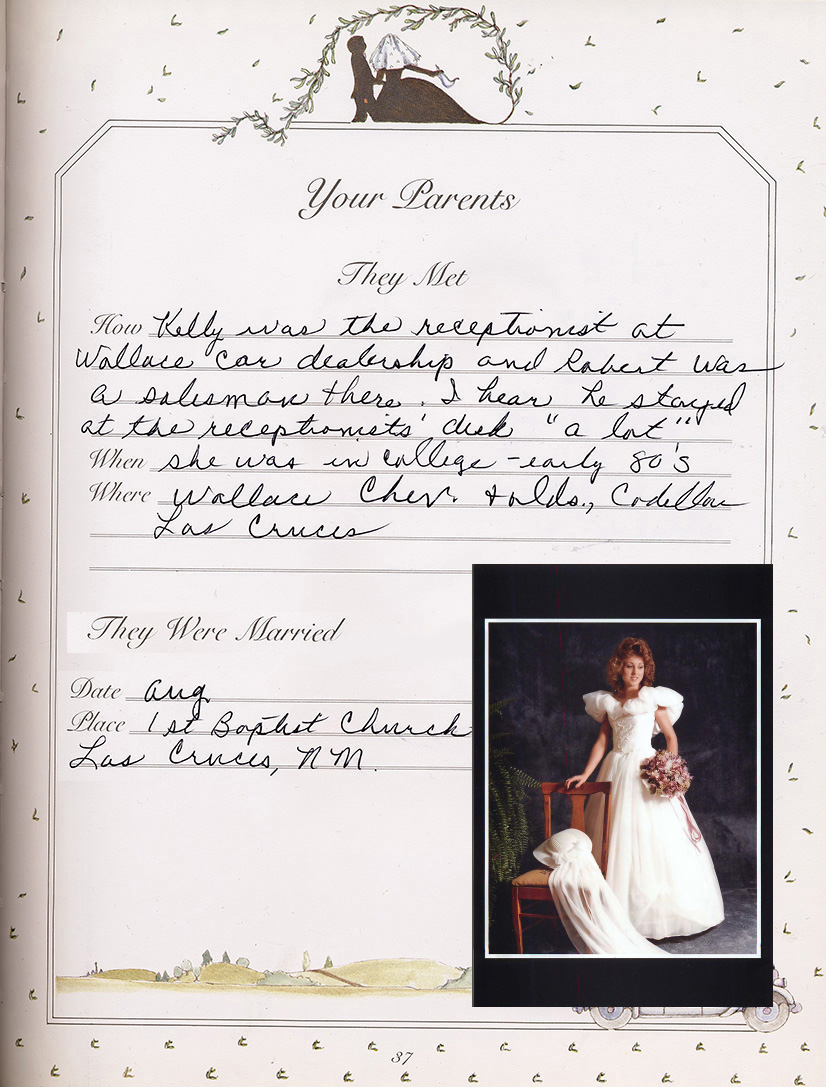 Your Parents
They Met
How Kelly was the receptionist at
Wallace car dealership and Robert was
a salesman there. I hear he stayed
at the receptionists' desk "a lot"
When she was in college - early 80's
Where Wallace Chev. + olds., Cadillac
Las Cruces
They Were Married
Date Aug
Place 1st Baptist Church
Las Cruces, NM.
37